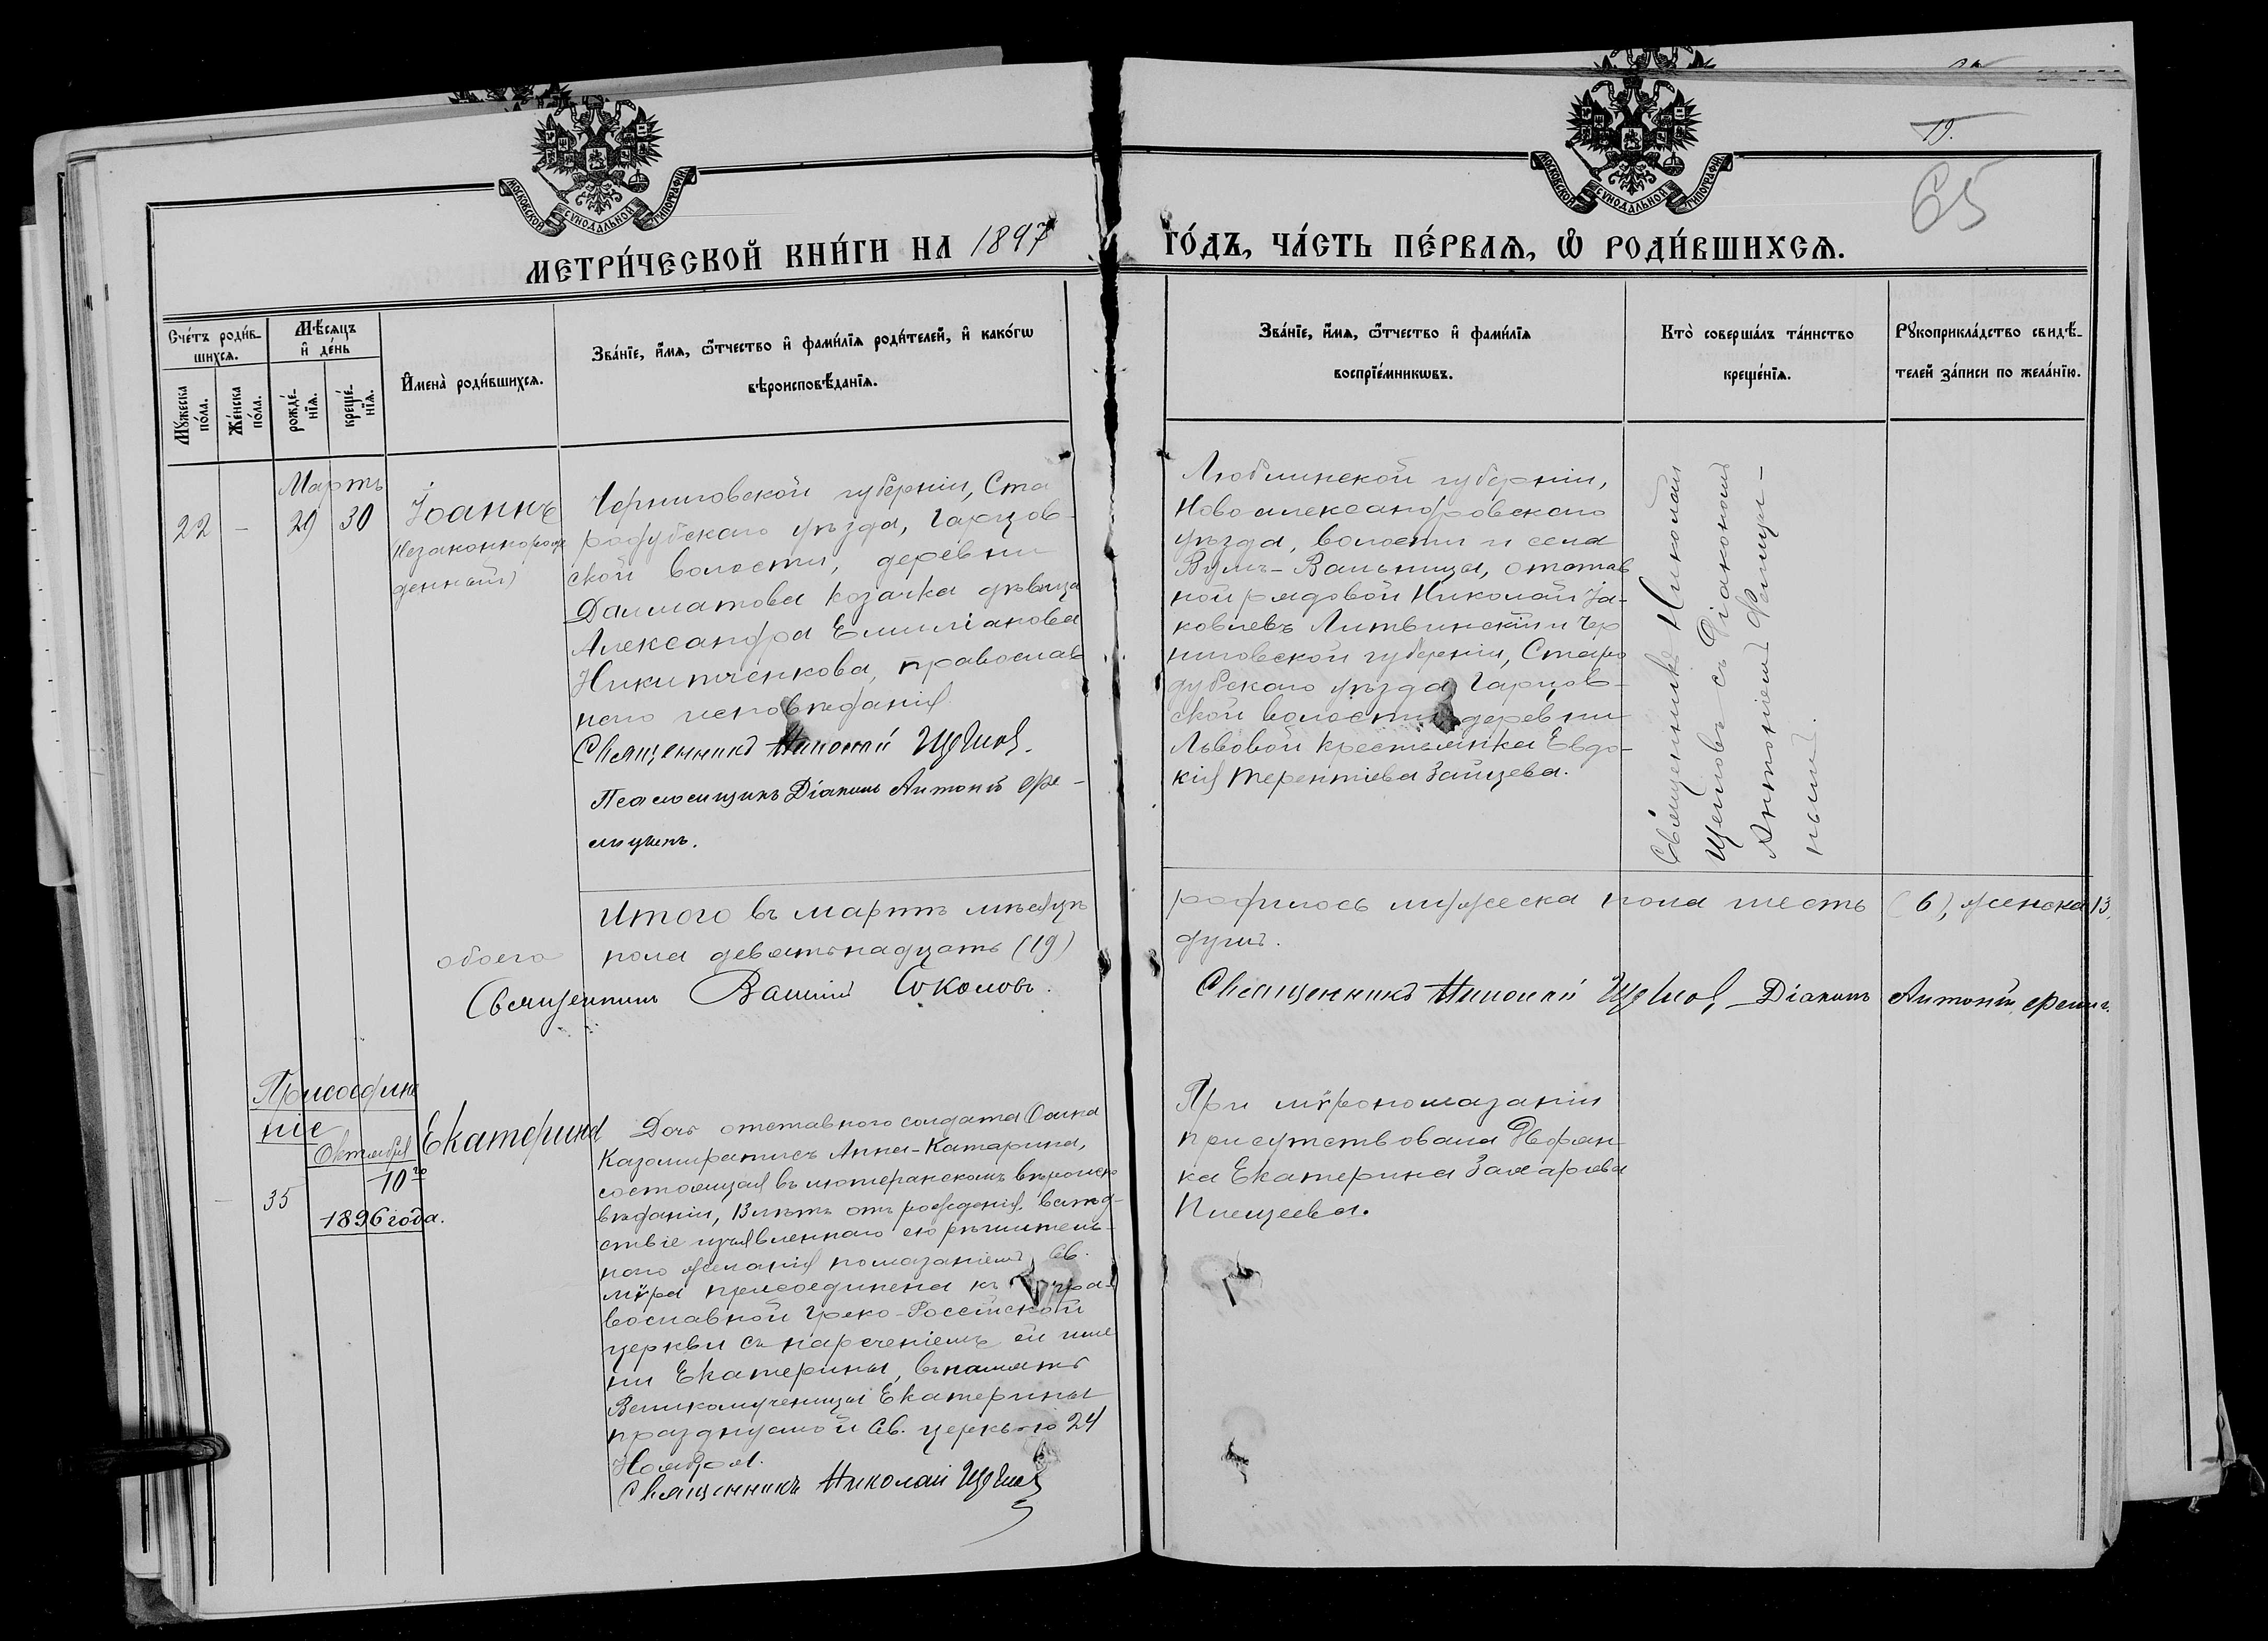 19.
65
МОСКОВСКОЙ СУНОДАЛЬНОЙ ТИПОГРАФІИ
МОСКОВСКОЙ СУНОДАЛЬНОЙ ТИПОГРАФІИ
МЕТРИ́ЧЕСКОЙ КНИ́ГИ НА 1897
ГО́ДЪ, ЧА́СТЬ ПЕ́РВАѦ, Ѽ РОДИ́ВШИХСѦ.
Сче́тъ роди́в-
шихсѧ.
Мꙋ́жеска
по́ла.
Же́нска
по́ла.
Мѣ́сѧцъ
и҆ де́нь
рожде́-
нїѧ.
креще́-
нїѧ.
И҆мена̀ роди́вшихсѧ.
Зва́нїе, и҆́мѧ, ѻ҆́тчество и҆ фами́лїѧ роди́телей, и҆ како́гѡ
вѣроисповѣ́данїѧ.
Зва́нїе, и҆́мѧ, ѻ҆́тчество и҆ фами́лїѧ
воспрїе́мникѡвъ.
Кто̀ соверша́лъ та́инство
креще́нїѧ.
Рꙋкоприкла́дство свидѣ́-
телей за́писи по жела́нїю.
Мартъ
22 - 29 30
Іоаннъ
(Незаконнорож
денный)
Черниговской губерніи, Ста
родубскаго уѣзда, Гарцов-
ской волости, деревни
Далматова козачка дѣвица
Александра Емиліанова
Никитченкова, православ
наго исповѣданія.
Священникъ Николай Щегловъ.
Псаломщикъ Діаконъ Антоній
Люблинской губерніи,
Новоалександровскаго
уѣзда, волости и села
отстав
ной рядовой Николай Іа-
ковлевъ Литвинскій и Чер
ниговской губерніи, Старо
дубскаго уѣзда, Гарцов-
ской волости, деревни
Львовой крестьянка Евдо-
кія Терентіева Зайцева.
Священникъ Николай
Щегловъ съ Діакономъ
Антоніемъ
нымъ.
Итого въ мартѣ мѣсяцѣ
родилось мужеска пола шесть (6), женска 13,
обоего пола девятьнадцать (19)
душъ.
Священникъ Василій Соколовъ.
Священникъ Николай Щегловъ, Діаконъ Антоній
Присоедине
ніе
Октября
10го
35
1896 года.
Екатерина
Дочь отставного солдата
Анна-Катарина,
состоящая въ лютеранскомъ вѣроиспо
вѣданіи, 13 лѣтъ отъ рожденія, вслѣд-
ствіе изъявленнаго ею рѣшитель-
наго желанія помазаніемъ Св.
мѵра присоединена къ пра-
вославной Греко-Россійской
церкви съ нареченіемъ ей име
ни Екатерины, въ память
Великомученицы Екатерины
празднуемой Св. церковью 24
Ноября.
Священникъ Николай Щегловъ
При мѵропомазаніи
присутствовала Дворян
ка Екатерина Захарова
Плещеева.